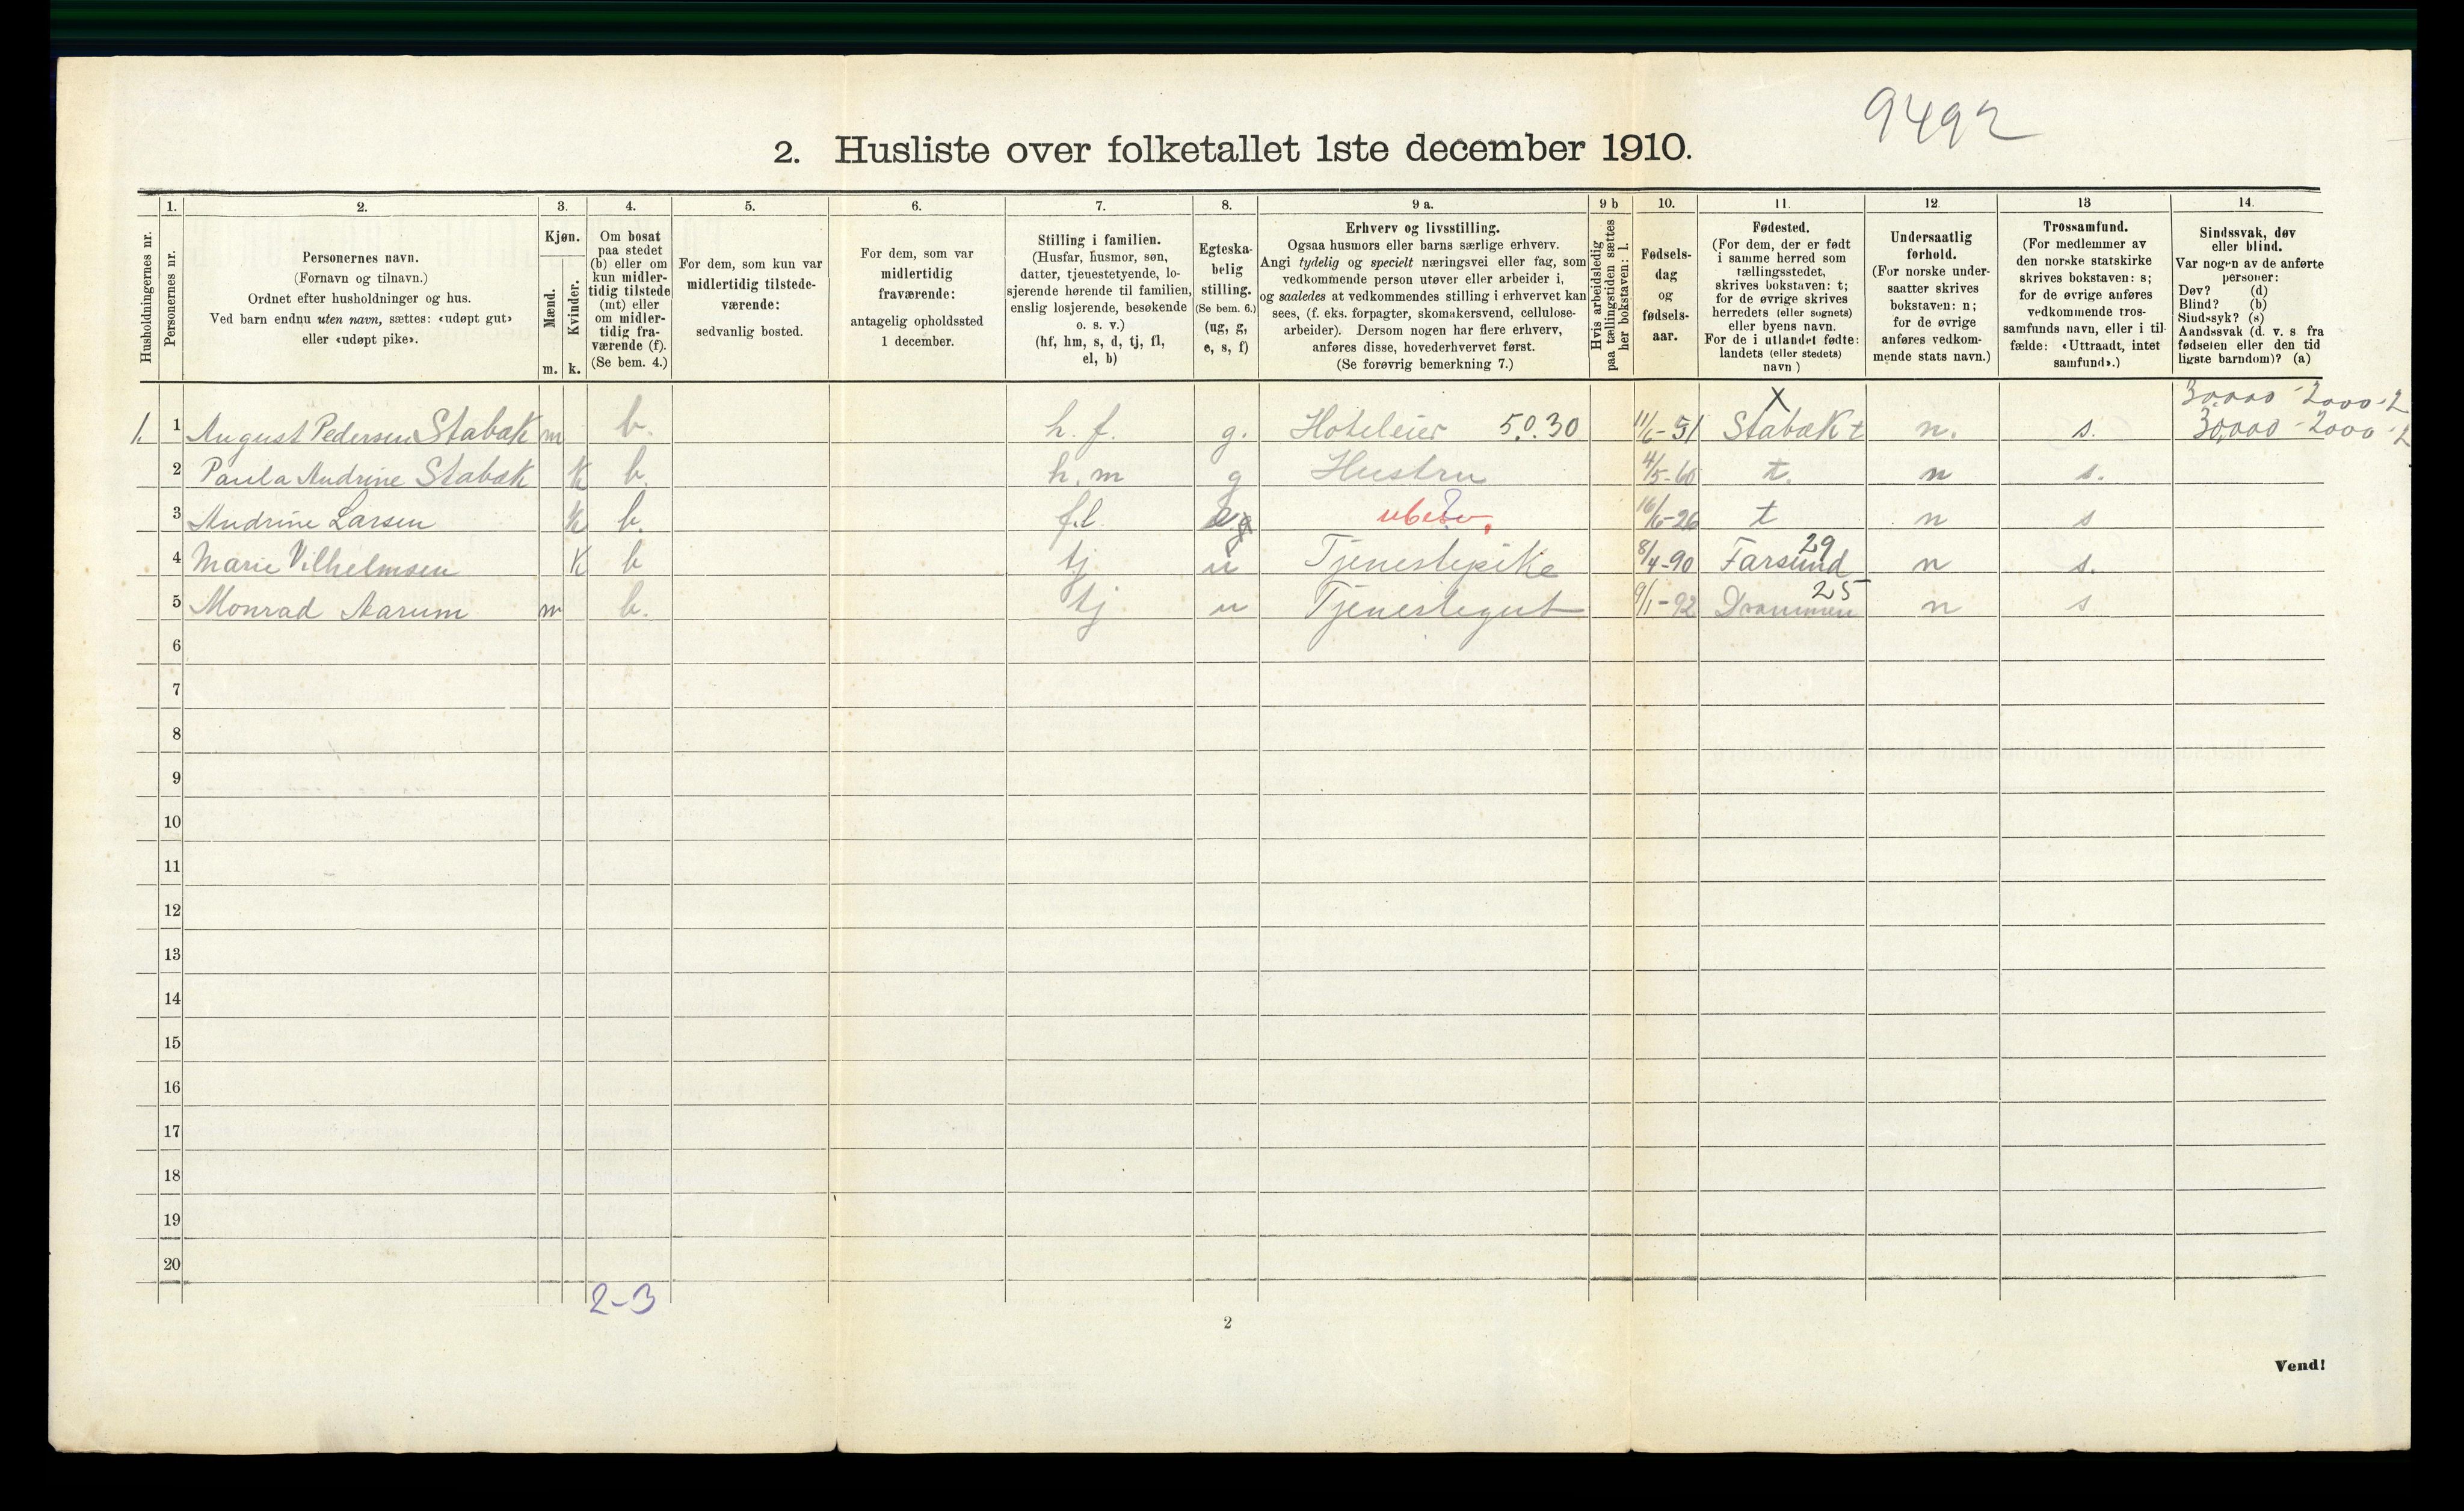 9492
2. Husliste over folketallet 1ste december 1910.
Husholdningernes nr.
1.
Personernes nr.
2.
Personernes navn.
(Fornavn og tilnavn.)
Ordnet efter husholdninger og hus.
Ved barn endnu uten navn, sættes: «udøpt gut»
eller «udøpt pike».
3.
Kjøn.
Mænd.
Kvinder.
m. k.
4.
Om bosat
paa stedet
(b) eller om
kun midler-
tidig tilstede
(mt) eller
om midler-
tidig fra-
værende (f).
(Se bem. 4.)
5.
For dem, som kun var
midlertidig tilstede-
værende:
sedvanlig bosted.
6.
For dem, som var
midlertidig
fraværende:
antagelig opholdssted
1 december.
7.
Stilling i familien.
(Husfar, husmor, søn,
datter, tjenestetyende, lo-
sjerende hørende til familien,
enslig losjerende, besøkende
o. s. v.)
(hf, hm, s, d, tj, fl,
el, b)
8.
Egteska-
belig
stilling.
(Se bem. 6.)
(ug, g,
e, s, f)
9 a.
Erhverv og livsstilling.
Ogsaa husmors eller barns særlige erhverv.
Angi tydelig og specielt næringsvei eller fag, som
vedkommende person utøver eller arbeider i,
og saaledes at vedkommendes stilling i erhvervet kan
sees, (f. eks. forpagter, skomakersvend, cellulose-
arbeider). Dersom nogen har flere erhverv,
anføres disse, hovederhvervet først.
(Se forøvrig bemerkning 7.)
9 b
Hvis arbeidsledig
paa tællingstiden sættes
her bokstaven: l.
10.
Fødsels-
dag
og
fødsels-
aar.
11.
Fødested.
(For dem, der er født
i samme herred som
tællingsstedet,
skrives bokstaven: t;
for de øvrige skrives
herredets (eller sognets)
eller byens navn.
For de i utlandet fødte:
landets (eller stedets)
navn )
12.
Undersaatlig
forhold.
(For norske under-
saatter skrives
bokstaven: n;
for de øvrige
anføres vedkom-
mende stats navn.)
13
Trossamfund.
(For medlemmer av
den norske statskirke
skrives bokstaven: s;
for de øvrige anføres
vedkommende tros-
samfunds navn, eller i til-
fælde: «Uttraadt, intet
samfund».)
14.
Sindssvak, døv
eller blind.
Var nogen av de anførte
personer:
Døv? (d)
Blind? (b)
Sindssyk? (s)
Aandssvak (d. v. s. fra
fødselen eller den tid
ligste barndom)? (a)
X 30,000 - 2000 - 2
1. 1 August Pedersen Stabæk m b. h. f. g. Hoteleier 5.0.30 11/6-51 Stabæk t n. s. 30,000 - 2000 - 2
2 Paula Andrine Stabæk K b. h. m g Hustru 4/5-60 t. n s.
3 Andrine Larsen K b. f.l t n s
29
4 Marie Vilhelmsen K b tj u Tjenestepike 8/4-90 Farsund n s.
25
5 Monrad Aarum m b. tj u Tjenestegut 9/1-92 Drammen n s
6
7
8
9
10
11
12
13
14
15
16
17
18
19
20
2-3
2
Vend!